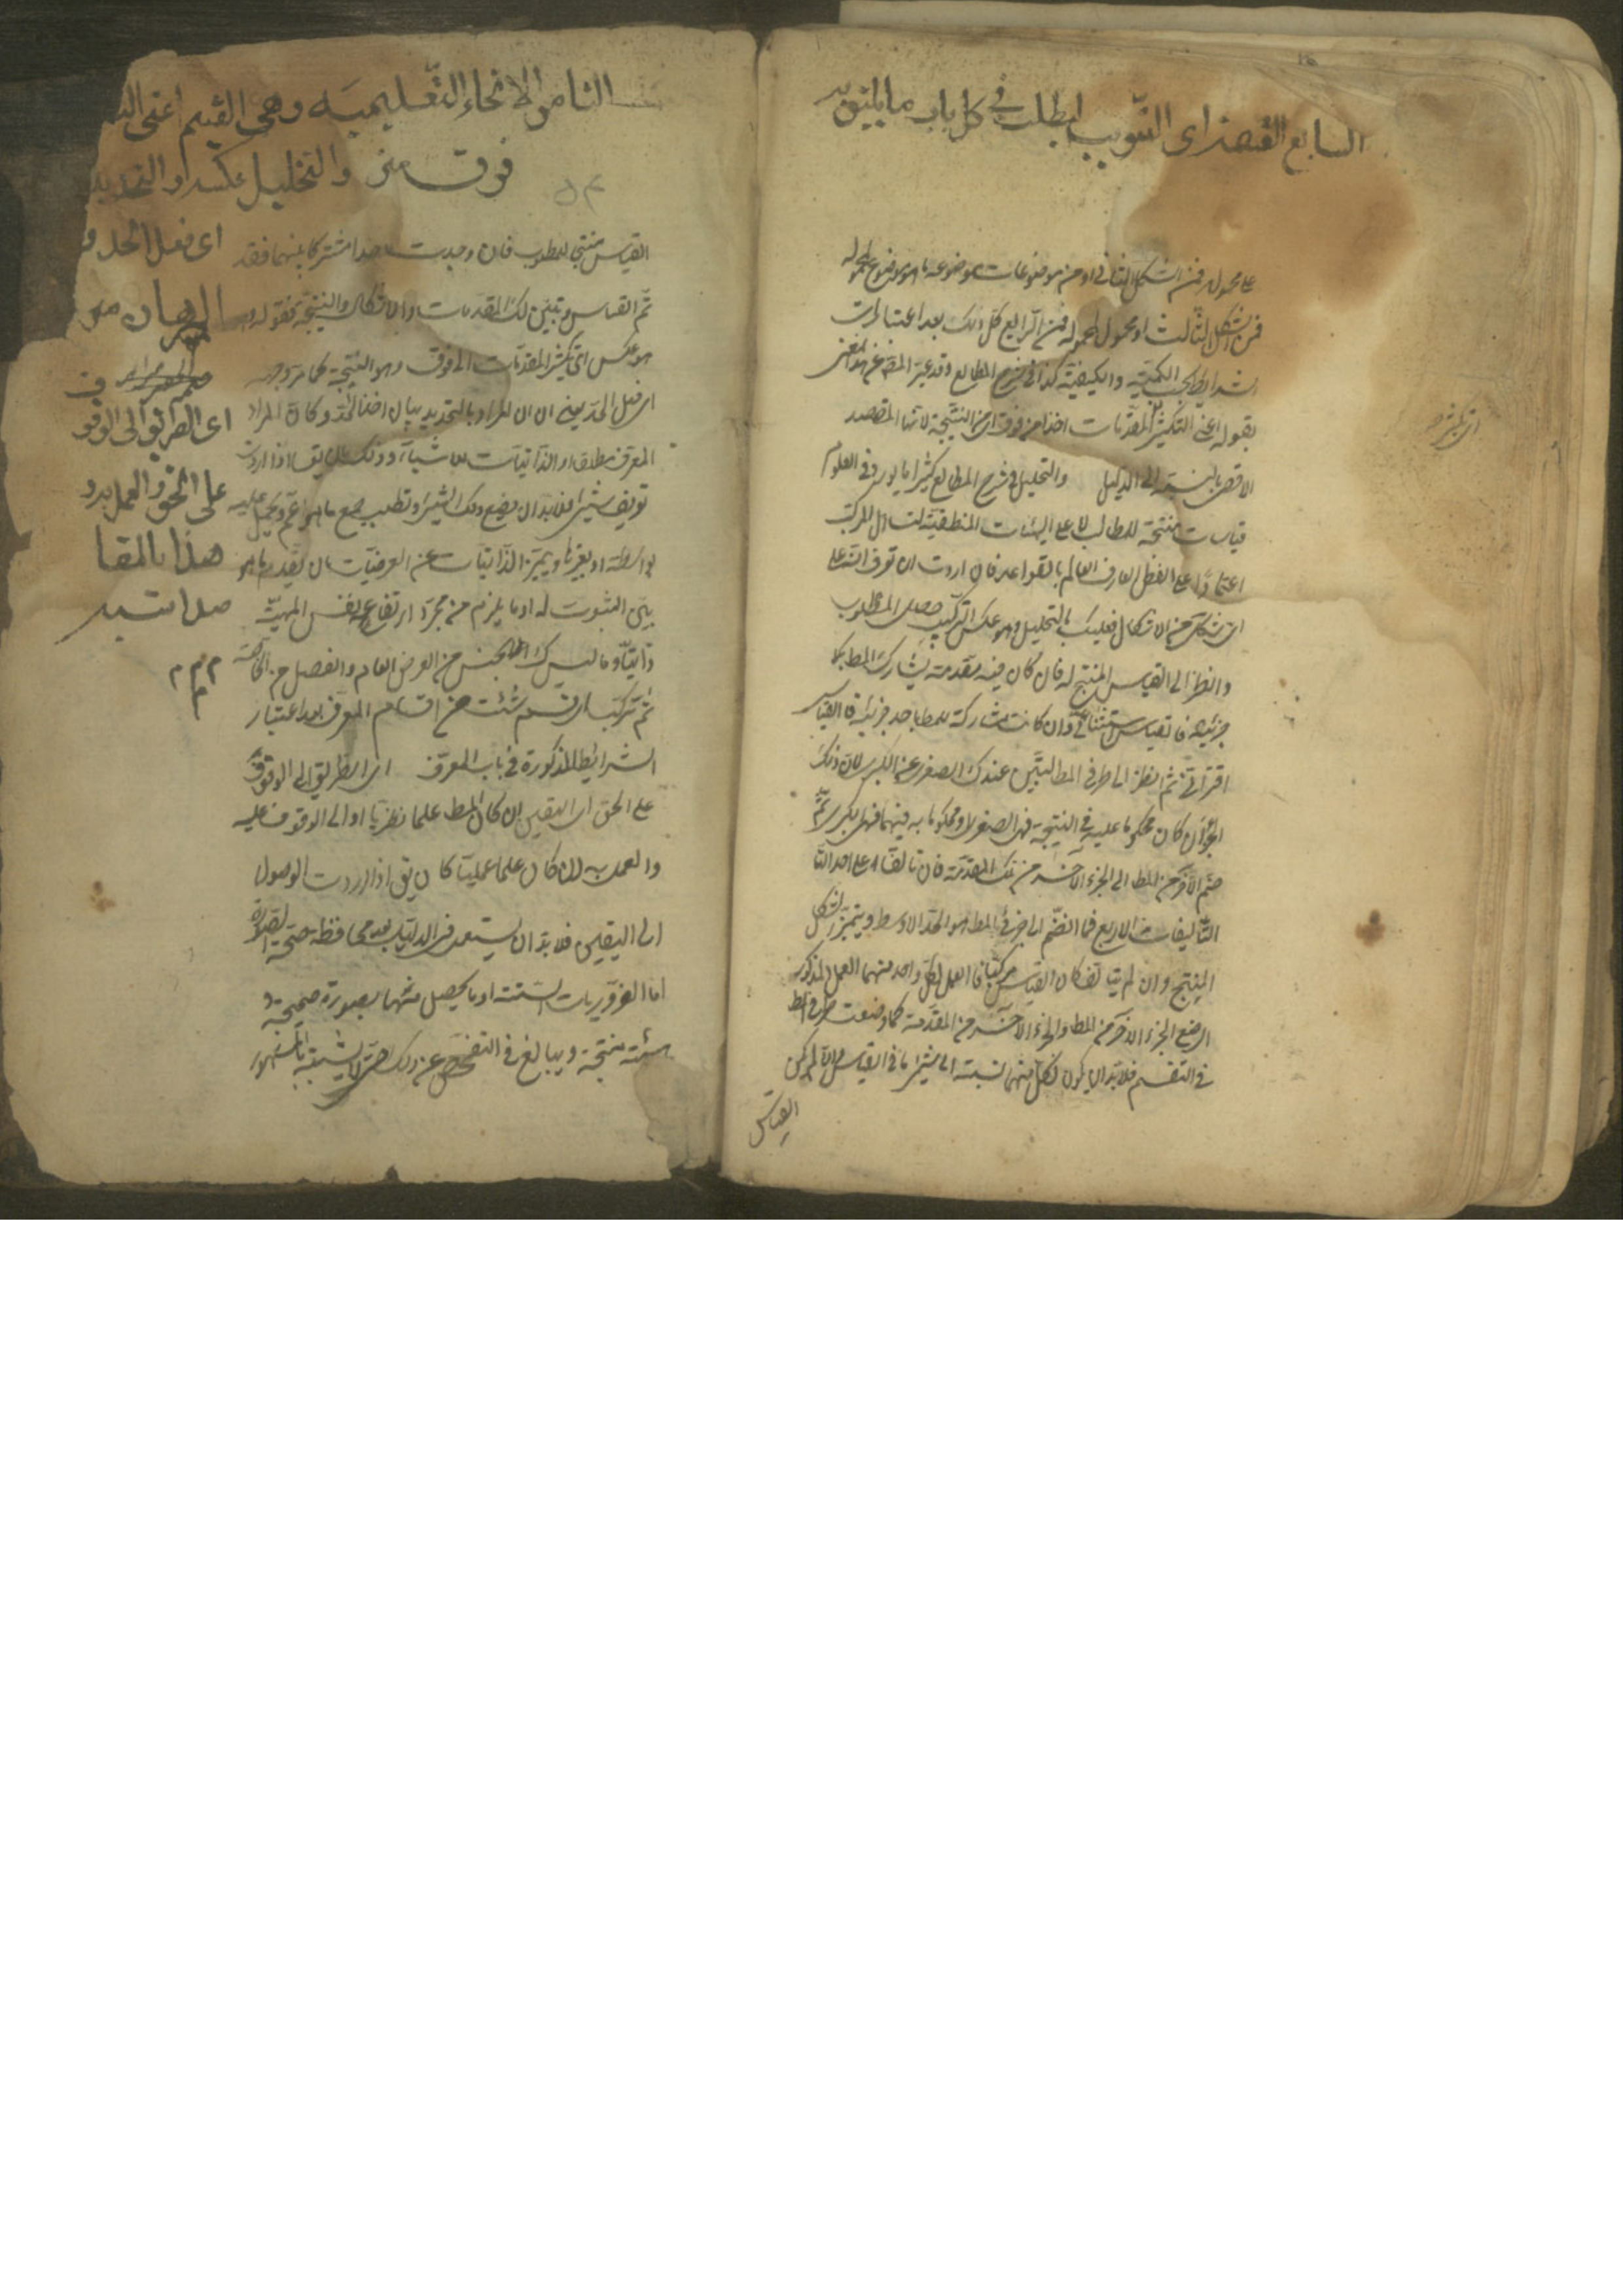 السابع القسمة اى التبويب ليطلب فى كل باب ما يليق به
على محموله فمن الشكل الثانى او من موضوعات موضوعه ما هو موضوع لمحموله
فمن الشكل الثالث او محمول لمحموله فمن الرابع كل ذلك بعد اعتبار
الشرايط بحسب الكمية والكيفية كذا فى شرح المطالع وقد عبر المص عن هذا المعنى
بقوله اعنى التكثير للمقدمات اخذا من فوق اى من النتيجة لانها المقصد
الاقصى بالنسبة الى الدليل والتحليل فى شرح المطالع كثيرا ما يورد فى العلوم
قياسات منتجة للمطالب لا على الهيئات المنطقية لتساهل المركب
اعتمادا على الفطن العارف العالم بالقواعد فان اردت ان تعرف انه على
اى شكل من الاشكال فعليك بالتحليل وهو عكس التركيب حصل المطلوب
وانظر الى القياس المنتج له فان كان فيه مقدمة يشارك المط بكلا
جزئيه فالقياس استثنائى وان كانت مشاركة للمط باحد جزئيه فالقياس
اقترانى ثم انظر الى طرفى المط ليتميز عندك الصغرى عن الكبرى لان ذلك
الجزء ان كان محكوما عليه فى النتيجة فهى الصغرى او محكوما به فيها فهى الكبرى ثم
ضم الآخر من المط الى الجزء الآخر من تلك المقدمة فان تالفا على احد
التاليفات الاربع فما انضم الى جزئى المط هو الحد الاوسط ويتميز الشكل
المنتج وان لم يتالفا كان القياس مركبا فاعمل بكل واحد منهما العمل المذكور
اى ضع الجزء الآخر من المط والجزء الآخر من المقدمة كما وضعت طرفى المط
فى التقسيم فلا بد ان يكون لكل منهما نسبة الى شئ ما فى القياس والا لم يكن
القياس
الثامن الانحاء التعليمية وهى التقسيم اعنى
فوق من والتحليل عكسه والتحديد
اى فعل الحد و
البرهان
اى الطريق الى الوقوف
على الحق والعمل به و
هذا بالمقا
صد اشبه
القياس منتجا للمطلوب فان وجدت حدا مشتركا بينهما فقد
تم القياس وتبين لك المقدمات والاشكال والنتيجة فقوله وهو
هو عكس اى تكثير المقدمات الى فوق وهو النتيجة كما مر وجهه
اى فعل الحد يعنى ان المراد بالتحديد بيان اخذ الحد وكان المراد
المعرف مطلقا او الذاتيات للاشياء وذلك بان يقا اذا اردت
تعريف شئ فلا بد ان يضع ذلك الشئ وتطلب جميع ما هو اعم ويحمل عليه
بواسطة او بغيرها ويميز الذاتيات عن العرضيات بان تعد ما هو
بين الثبوت له او ما يلزم من مجرد ارتفاعه نفس المهية
ذاتيا وما ليس كذلك
ثم تركب اى قسم شئت من اقسام المعرف بعد اعتبار
الشرائط المذكورة فى باب المعرف اى الطريق الى الوقوف
على الحق اى اليقين ان كان المط علما نظريا او الى الوقوف عليه
والعمل به ان كان علما عمليا كان يق اذا اردت الوصول
الى اليقين فلا بد ان يستعمل فى الدليل بعد محافظة صحة الصورة
اما الضروريات الستة او ما يحصل منها بصورة صحيحة و
هيئة منتجة ويبالغ فى التفحص عن ذلك حتى لا يشتبه بالمشهور